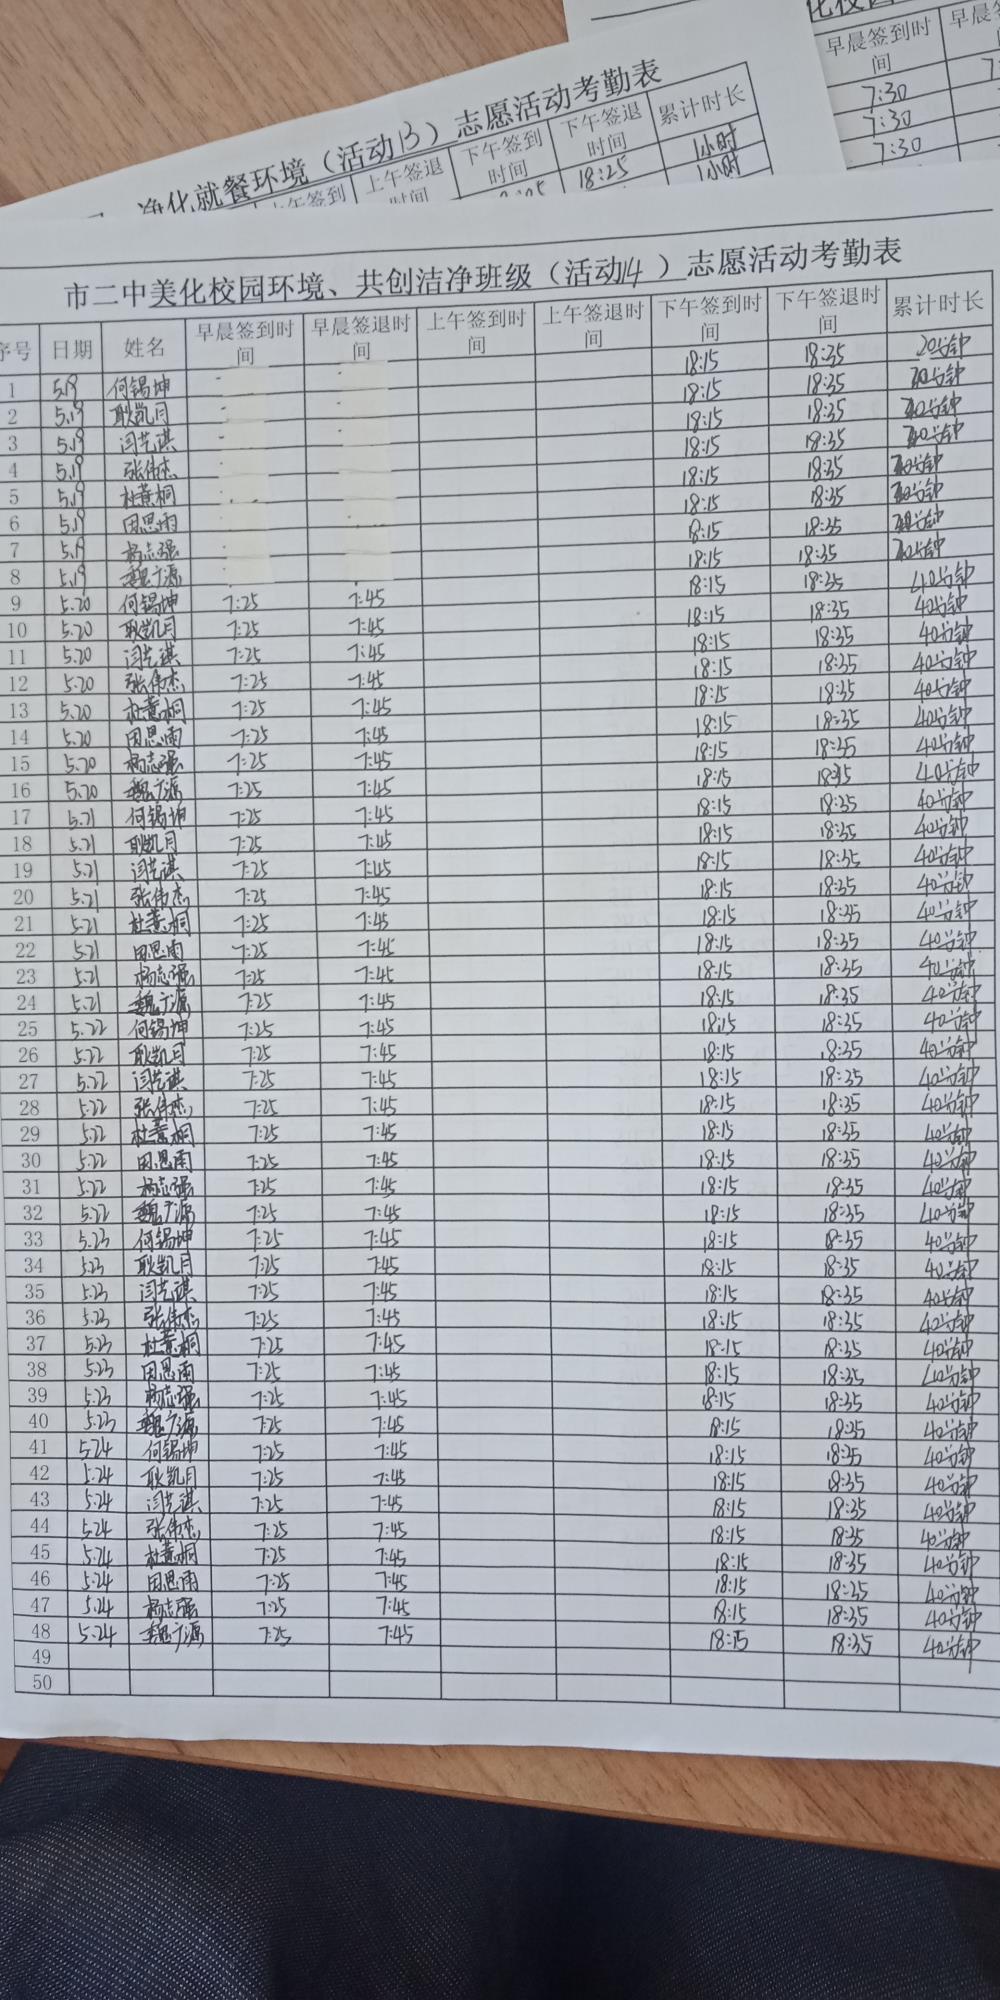 化校园
早晨签到时间 早晨
7:30 7
7:30
7:30
净化就餐环境（活动13）志愿活动考勤表
上午签到 上午签退时间 下午签到时间 下午签退时间 累计时长
18:25 1小时
1小时
市二中美化校园环境、共创洁净班级（活动14）志愿活动考勤表
序号 日期 姓名 早晨签到时间 早晨签退时间 上午签到时间 上午签退时间 下午签到时间 下午签退时间 累计时长
1 5.19 何锡坤 18:15 18:35 20分钟
2 5.19 耿凯月 18:15 18:35 20分钟
3 5.19 闫艺淇 18:15 18:35 20分钟
4 5.19 张伟杰 18:15 18:35 20分钟
5 5.19 杜薏桐 18:15 18:35 20分钟
6 5.19 因思雨 18:15 18:35 20分钟
7 5.19 杨志强 18:15 18:35 20分钟
8 5.19 魏广源 18:15 18:35 20分钟
9 5.20 何锡坤 7:25 7:45 18:15 18:35 40分钟
10 5.20 耿凯月 7:25 7:45 18:15 18:35 40分钟
11 5.20 闫艺淇 7:25 7:45 18:15 18:35 40分钟
12 5.20 张伟杰 7:25 7:45 18:15 18:35 40分钟
13 5.20 杜薏桐 7:25 7:45 18:15 18:35 40分钟
14 5.20 因思雨 7:25 7:45 18:15 18:35 40分钟
15 5.20 杨志强 7:25 7:45 18:15 18:35 40分钟
16 5.20 魏广源 7:25 7:45 18:15 18:35 40分钟
17 5.21 何锡坤 7:25 7:45 18:15 18:35 40分钟
18 5.21 耿凯月 7:25 7:45 18:15 18:35 40分钟
19 5.21 闫艺淇 7:25 7:45 18:15 18:35 40分钟
20 5.21 张伟杰 7:25 7:45 18:15 18:35 40分钟
21 5.21 杜薏桐 7:25 7:45 18:15 18:35 40分钟
22 5.21 因思雨 7:25 7:45 18:15 18:35 40分钟
23 5.21 杨志强 7:25 7:45 18:15 18:35 40分钟
24 5.21 魏广源 7:25 7:45 18:15 18:35 40分钟
25 5.22 何锡坤 7:25 7:45 18:15 18:35 40分钟
26 5.22 耿凯月 7:25 7:45 18:15 18:35 40分钟
27 5.22 闫艺淇 7:25 7:45 18:15 18:35 40分钟
28 5.22 张伟杰 7:25 7:45 18:15 18:35 40分钟
29 5.22 杜薏桐 7:25 7:45 18:15 18:35 40分钟
30 5.22 因思雨 7:25 7:45 18:15 18:35 40分钟
31 5.22 杨志强 7:25 7:45 18:15 18:35 40分钟
32 5.22 魏广源 7:25 7:45 18:15 18:35 40分钟
33 5.23 何锡坤 7:25 7:45 18:15 18:35 40分钟
34 5.23 耿凯月 7:25 7:45 18:15 18:35 40分钟
35 5.23 闫艺淇 7:25 7:45 18:15 18:35 40分钟
36 5.23 张伟杰 7:25 7:45 18:15 18:35 40分钟
37 5.23 杜薏桐 7:25 7:45 18:15 18:35 40分钟
38 5.23 因思雨 7:25 7:45 18:15 18:35 40分钟
39 5.23 杨志强 7:25 7:45 18:15 18:35 40分钟
40 5.23 魏广源 7:25 7:45 18:15 18:35 40分钟
41 5.24 何锡坤 7:25 7:45 18:15 18:35 40分钟
42 5.24 耿凯月 7:25 7:45 18:15 18:35 40分钟
43 5.24 闫艺淇 7:25 7:45 18:15 18:35 40分钟
44 5.24 张伟杰 7:25 7:45 18:15 18:35 40分钟
45 5.24 杜薏桐 7:25 7:45 18:15 18:35 40分钟
46 5.24 因思雨 7:25 7:45 18:15 18:35 40分钟
47 5.24 杨志强 7:25 7:45 18:15 18:35 40分钟
48 5.24 魏广源 7:25 7:45 18:15 18:35 40分钟
49
50